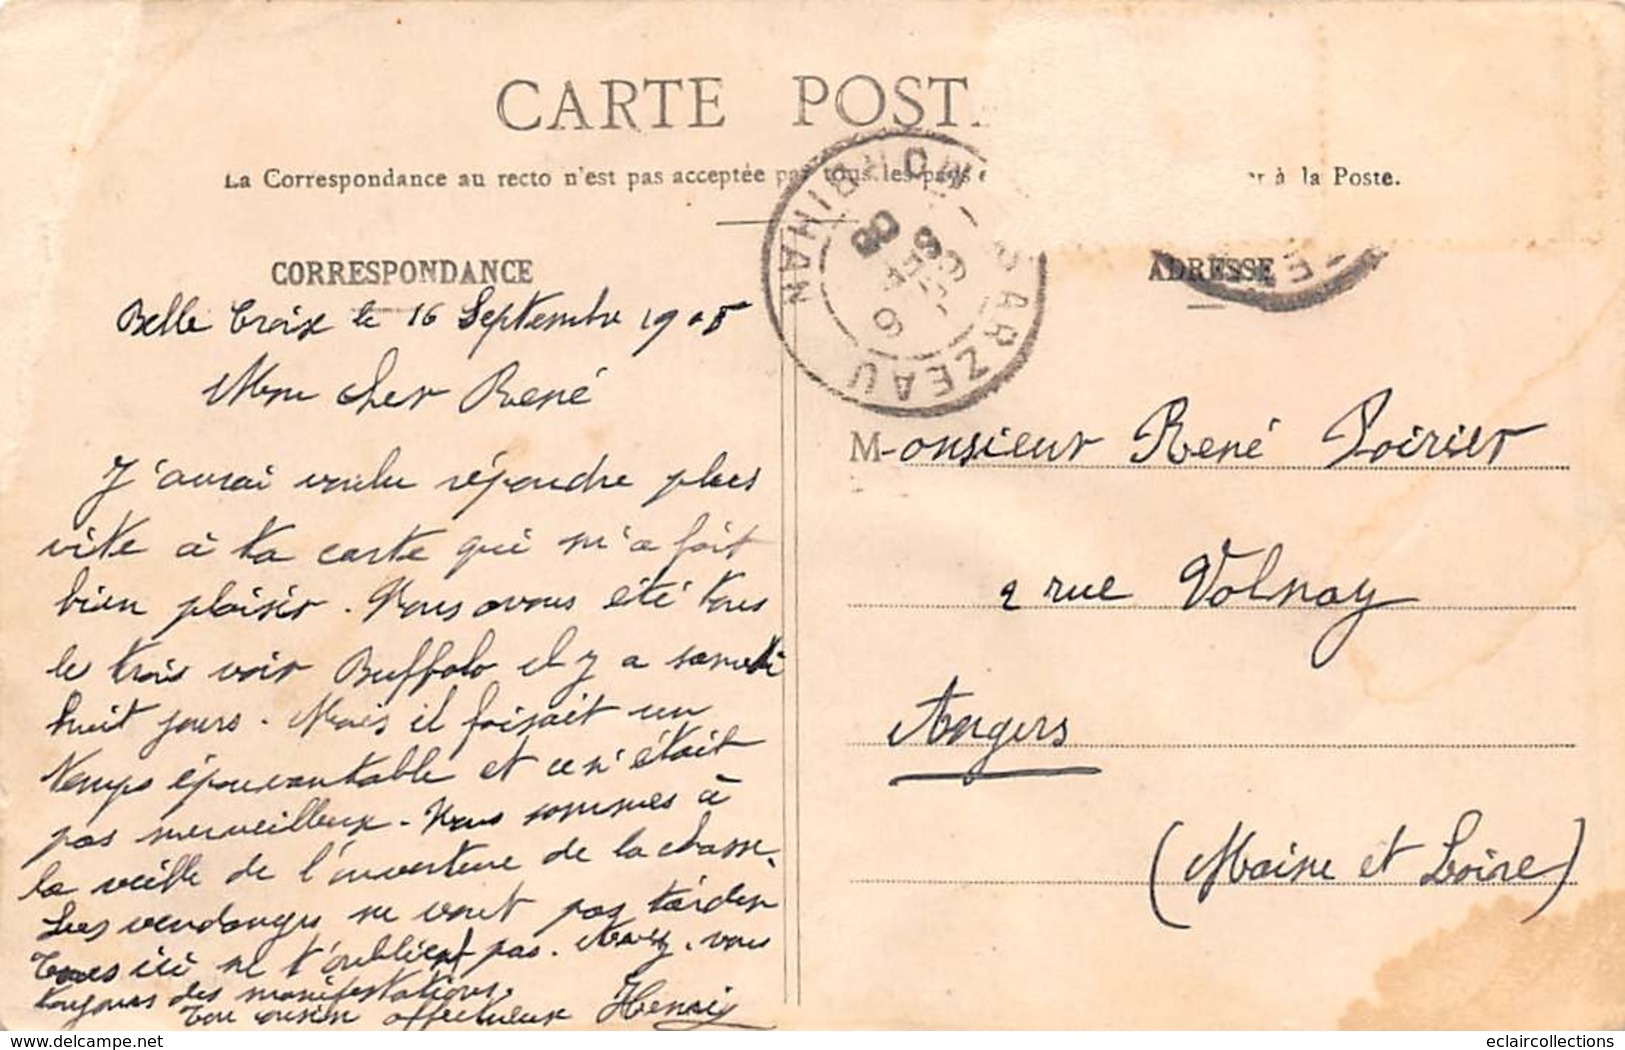 CARTE POST
La Correspondance au recto n'est pas acceptée par tous les pays
à la Poste.
CORRESPONDANCE
ADRESSE
SARZEAU
MORBIHAN
Belle Croix le 16 Septembre 1908
Mon cher René
J'aurai voulu répondre plus
vite à ta carte qui m'a fait
bien plaisir. Nous avons été tous
les trois voir Buffalo il y a samedi
huit jours. Mais il faisait un
temps épouvantable et ce n'était
pas merveilleux. Nous sommes à
la veille de l'ouverture de la chasse.
Les vendanges ne vont pas tarder
Tous ici ne t'oublient pas. Avez-vous
toujours des manifestations.
Ton cousin affectueux Henri
Monsieur René Poirier
2 rue Volnay
Angers
(Maine et Loire)
delcampe.net
eclaircollections